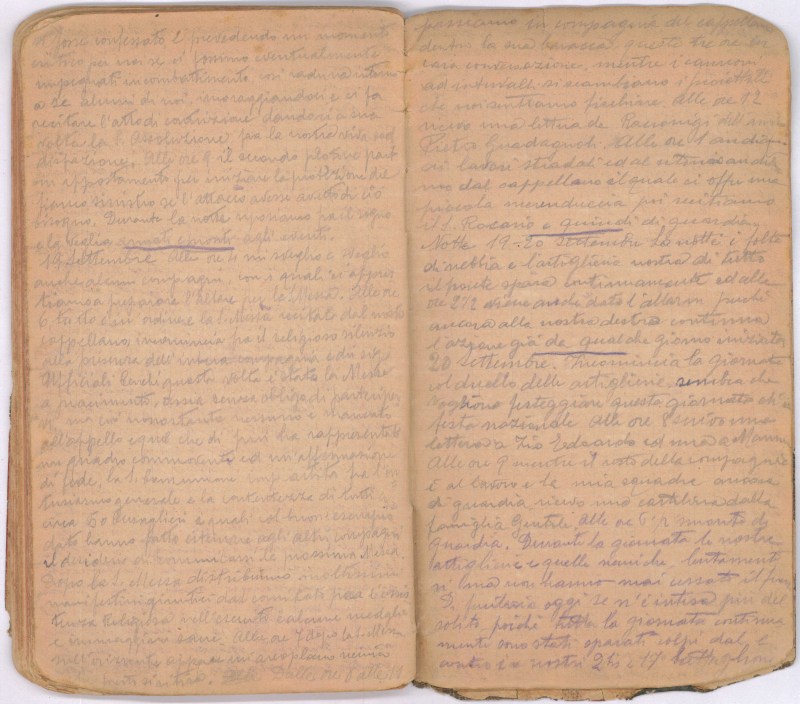 si fosse confessato, e prevedendo un momento
critico per noi se si fommo eventualmente
impegnati in combattimento, così raduna intorno
a se alcuni di noi, incoraggiandoci e ci fa
recitare l'atto di contrizione dandoci a sua
volta la S. Assoluzione fra la nostra viva sod
disfazione. Alle ore 9 il secondo plotone parte
in appostamento per iniziare la protezione del
fianco sinistro se l'attacco avesse avuto di ciò
bisogno. Durante la notte riposiamo fra il sogno
e la veglia armati e pronti agli eventi.
19 settembre Alle ore 4 mi sveglio e sveglio
anche alcuni compagni con i quali ci appres
tiamo a preparare l'altare per la Messa. Alle ore
6 tutto è in ordine e la S. Messa recitata dal nostro
cappellano, incomincia fra il religioso silenzio
alla presenza dell'intera compagnia e di
Ufficiali. Benchè questa volta è stata la Messa
a piacimento, ossia senza obbligo di partecipar
vi, ma ciò nonostante nessuno è mancato
all'appello e quel che di più ha rappresentato
un quadro commovente ed un'affermazione
di fede, la S. Comunione impartita fra l'en
tusiasmo generale e la contentezza di tutti a
circa 60 Bersaglieri i quali col buon esempio
dato hanno fatto esternare agli altri compagni
il desiderio di comunicarsi la prossima Messa.
Dopo la S. Messa distribuisco moltissimi
manifestini giuntici dal comitato per l'assis
tenza religiosa nell'esercito e alcune medaglie
e immagini sacre. Alle ore 7 dopo la S. Messa
nell'orizzonte appare un areoplano nemico
Dalle ore 8 alle 11
passiamo in compagnia del cappellano
dentro la sua baracca queste tre ore in
cara conversazione, mentre i cannoni
ad intervalli si scambiano i proiettili
che noi sentiamo fischiare. Alle ore 12
ricevo una lettera da Racconigi dell'amico
Pietro Guadagnoli. Alle ore 1 andiamo
ai lavori stradali ed al ritorno andia
mo dal cappellano il quale ci offre una
piccola merenduccia poi recitiamo
il S. Rosario e quindi di guardia.
Notte 19-20 Settembre La notte è folta
di nebbia e l'artiglieria nostra di tutte
le poste spara continuamente ed alle
ore 2 1/2 viene anche dato l'allarm poichè
ancora alla nostra destra continua
l'azione già da qualche giorno iniziata
20 Settembre. Incomincia la giornata
col duello delle artiglierie, sembra che
vogliono festeggiare questa giornata ch'è
festa nazionale Alle ore 8 scrivo una
lettera a Zio Edoardo ed una a Mamma
Alle ore 9 mentre il resto della compagnia
è al lavoro e la mia squadra ancora
di guardia, ricevo una cartolina dalla
famiglia Gentili. Alle ore 6 1/2 smonto di
guardia. Durante la giornata le nostre
artiglierie e quelle nemiche, lentamente
non hanno mai cessato il fuoco
oggi se n'è inteso più del
solito poichè tutta la giornata continua
mente sono stati sparati colpi dal e
contro i nostri 2 1/2 e 17° battaglione